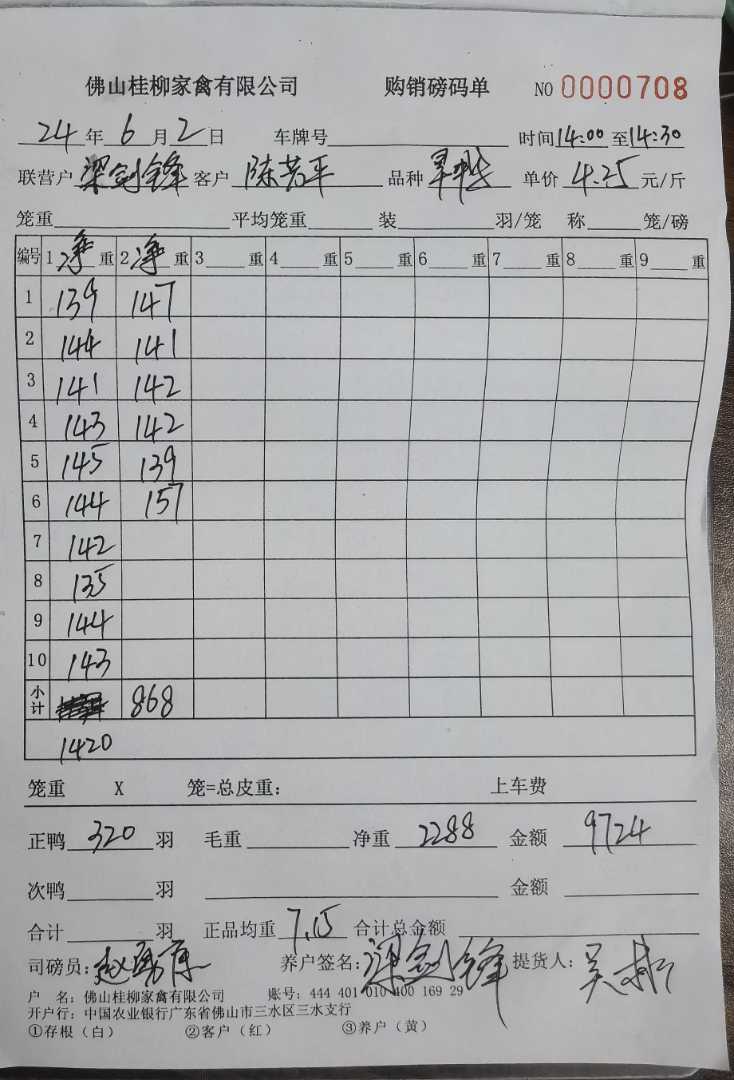 佛山桂柳家禽有限公司 购销磅码单 NO 0000708
24年6月2日 车牌号 时间14:00至14:30
联营户 梁剑锋 客户 陈芳平 品种 单价 4.25 元/斤
笼重 平均笼重 装 羽/笼 称 笼/磅
编号 1净重 2净重 3 重 4 重 5 重 6 重 7 重 8 重 9 重
1 139 147
2 144 141
3 141 142
4 143 142
5 145 139
6 144 157
7 142
8 135
9 144
10 143
小计 868
1420
笼重 X 笼=总皮重: 上车费
正鸭 320 羽 毛重 净重 2288 金额 9724
次鸭 羽 金额
合计 羽 正品均重 7.15 合计总金额
司磅员: 养户签名: 梁剑锋 提货人:
户 名: 佛山桂柳家禽有限公司 账号: 444 401 010 400 169 29
开户行: 中国农业银行广东省佛山市三水区三水支行
①存根(白) ②客户(红) ③养户(黄)